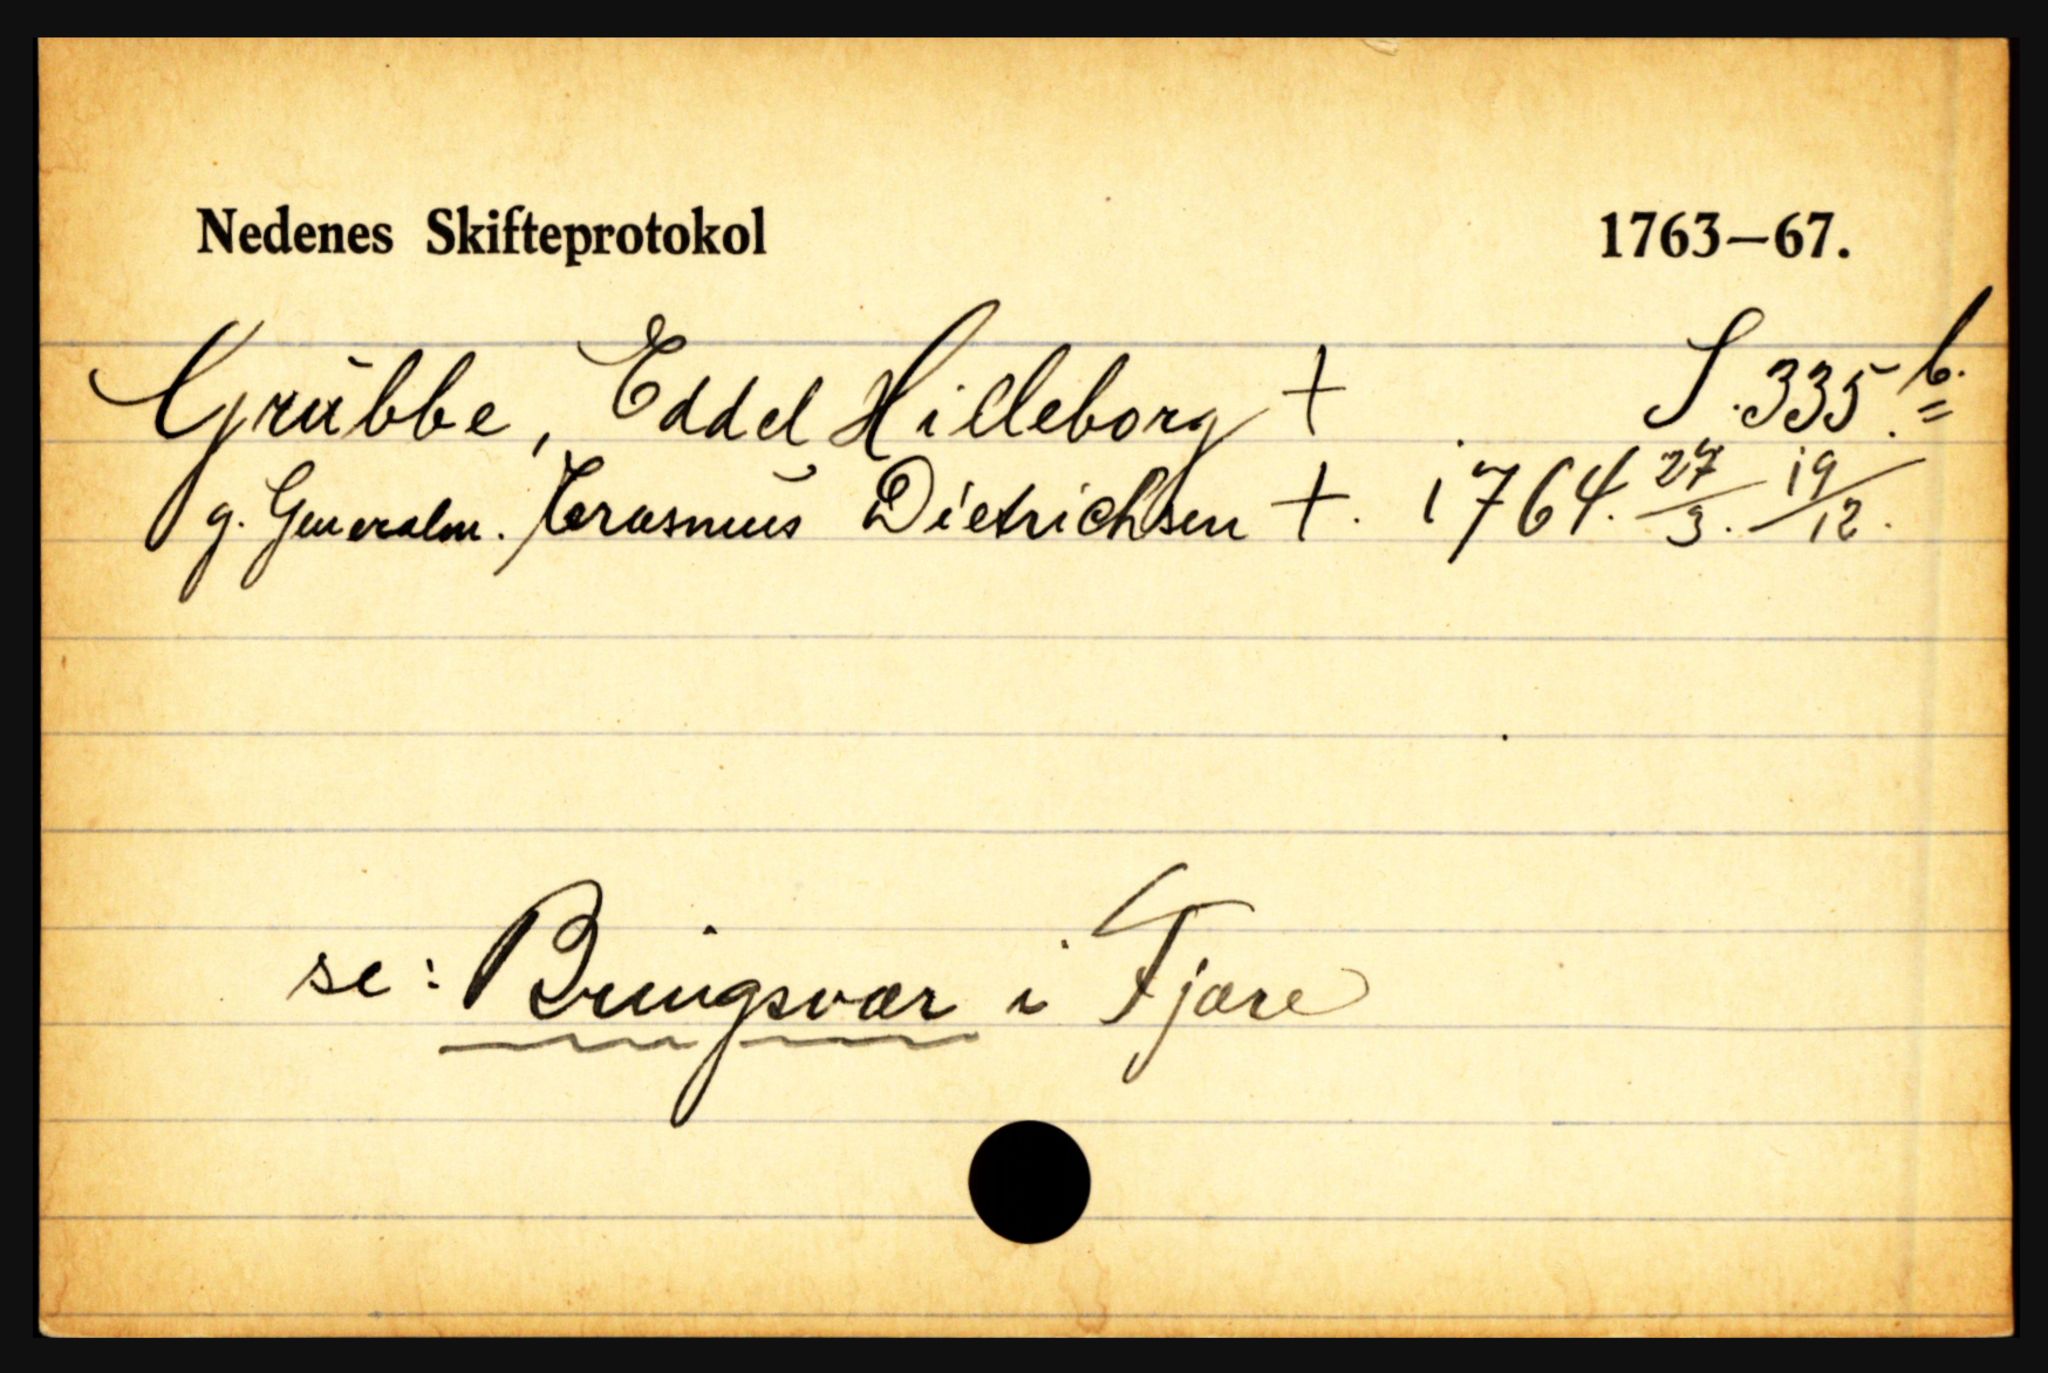 Nedenes Skifteprotokol 1763—67.
Grubbe, Eddel Hilleborg + S. 335.b.
g. Generalm. Erasmus Dietrichsen +. 1764. 27/3. 19/12.
se: Bringsvær i Fjære